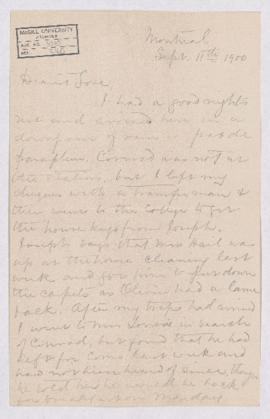 McGILL UNIVERSITY
ARCHIVES
ACC. NO.
REF.
Montreal,
Sept. 11th 1900
Dearest Love,
I had a good nights
rest and arrived here in a
downpour of rain - pas de
parapluie. Conrad was not at
the station, but I left my
with a transferman &
then went to the College to get
the house keys from Joseph.
Joseph says that Mrs Hail was
up at the house cleaning last
week and for him to put down
the carpets as had a lame
back. After my traps had arrived
I went to Mrs in search
of Conrad, but found that he had
left for last week and
had not been heard of since, though
he told her he would be back
for breakfast on Monday